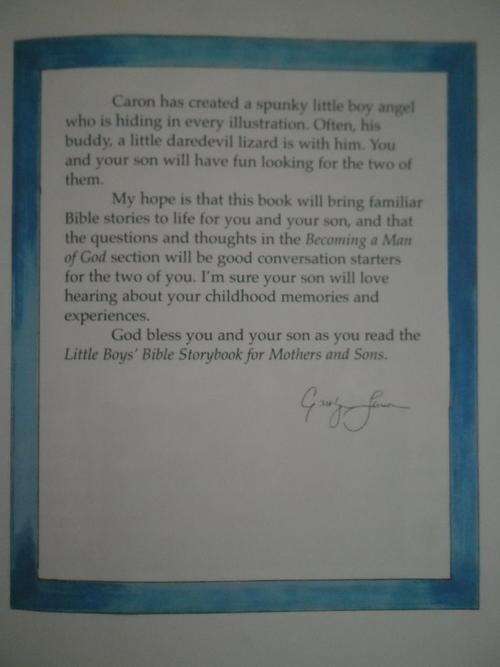 Caron has created a spunky little boy angel
who is hiding in every illustration. Often, his
buddy, a little daredevil lizard is with him. You
and your son will have fun looking for the two of
them.
My hope is that this book will bring familiar
Bible stories to life for you and your son, and that
the questions and thoughts in the Becoming a Man
of God section will be good conversation starters
for the two of you. I'm sure your son will love
hearing about your childhood memories and
experiences.
God bless you and your son as you read the
Little Boys' Bible Storybook for Mothers and Sons.